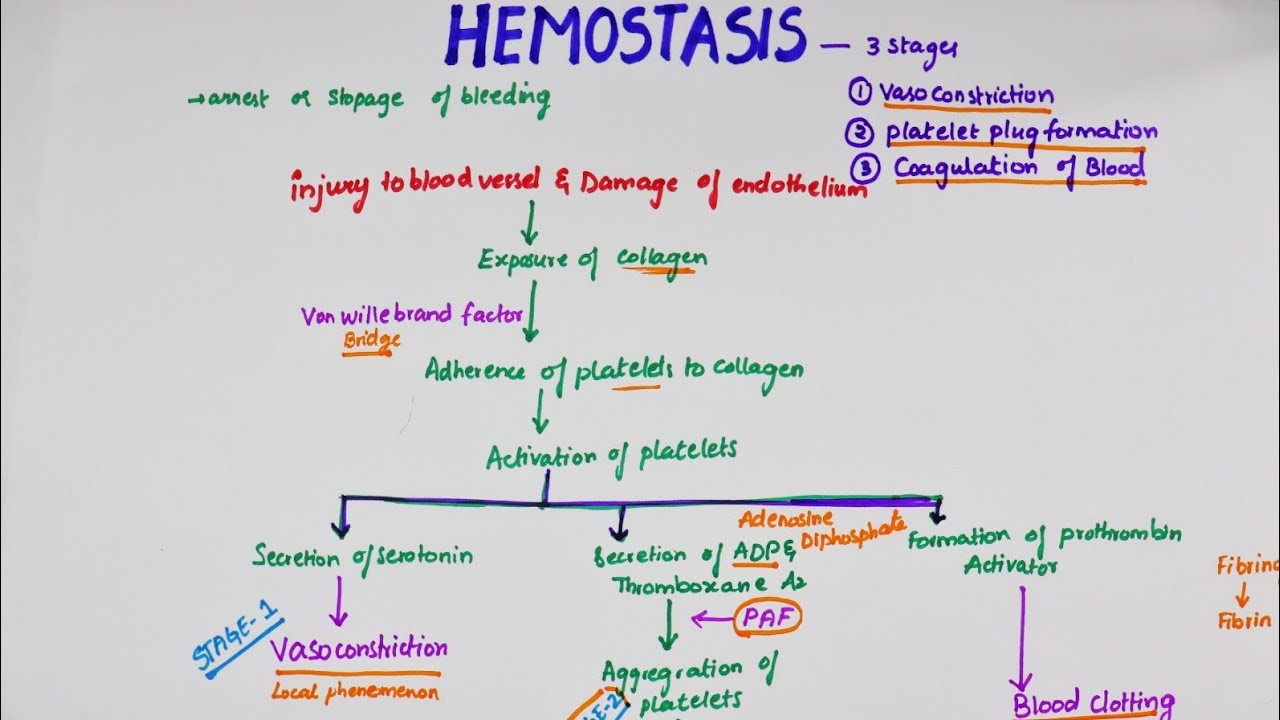 HEMOSTASIS – 3 stages
→ arrest or stopage of bleeding
① Vasoconstriction
② platelet plug formation
③ Coagulation of Blood
injury to blood vessel & Damage of endothelium
Exposure of collagen
Von willebrand factor
Bridge
Adherence of platelets to collagen
Activation of platelets
Secretion of serotonin
Secretion of ADP &
Thromboxane A2
Adenosine
Diphosphate
Formation of prothrombin
Activator
STAGE-1
Vasoconstriction
Local phenemenon
PAF
Aggregration of
platelets
Blood clotting
Fibrin